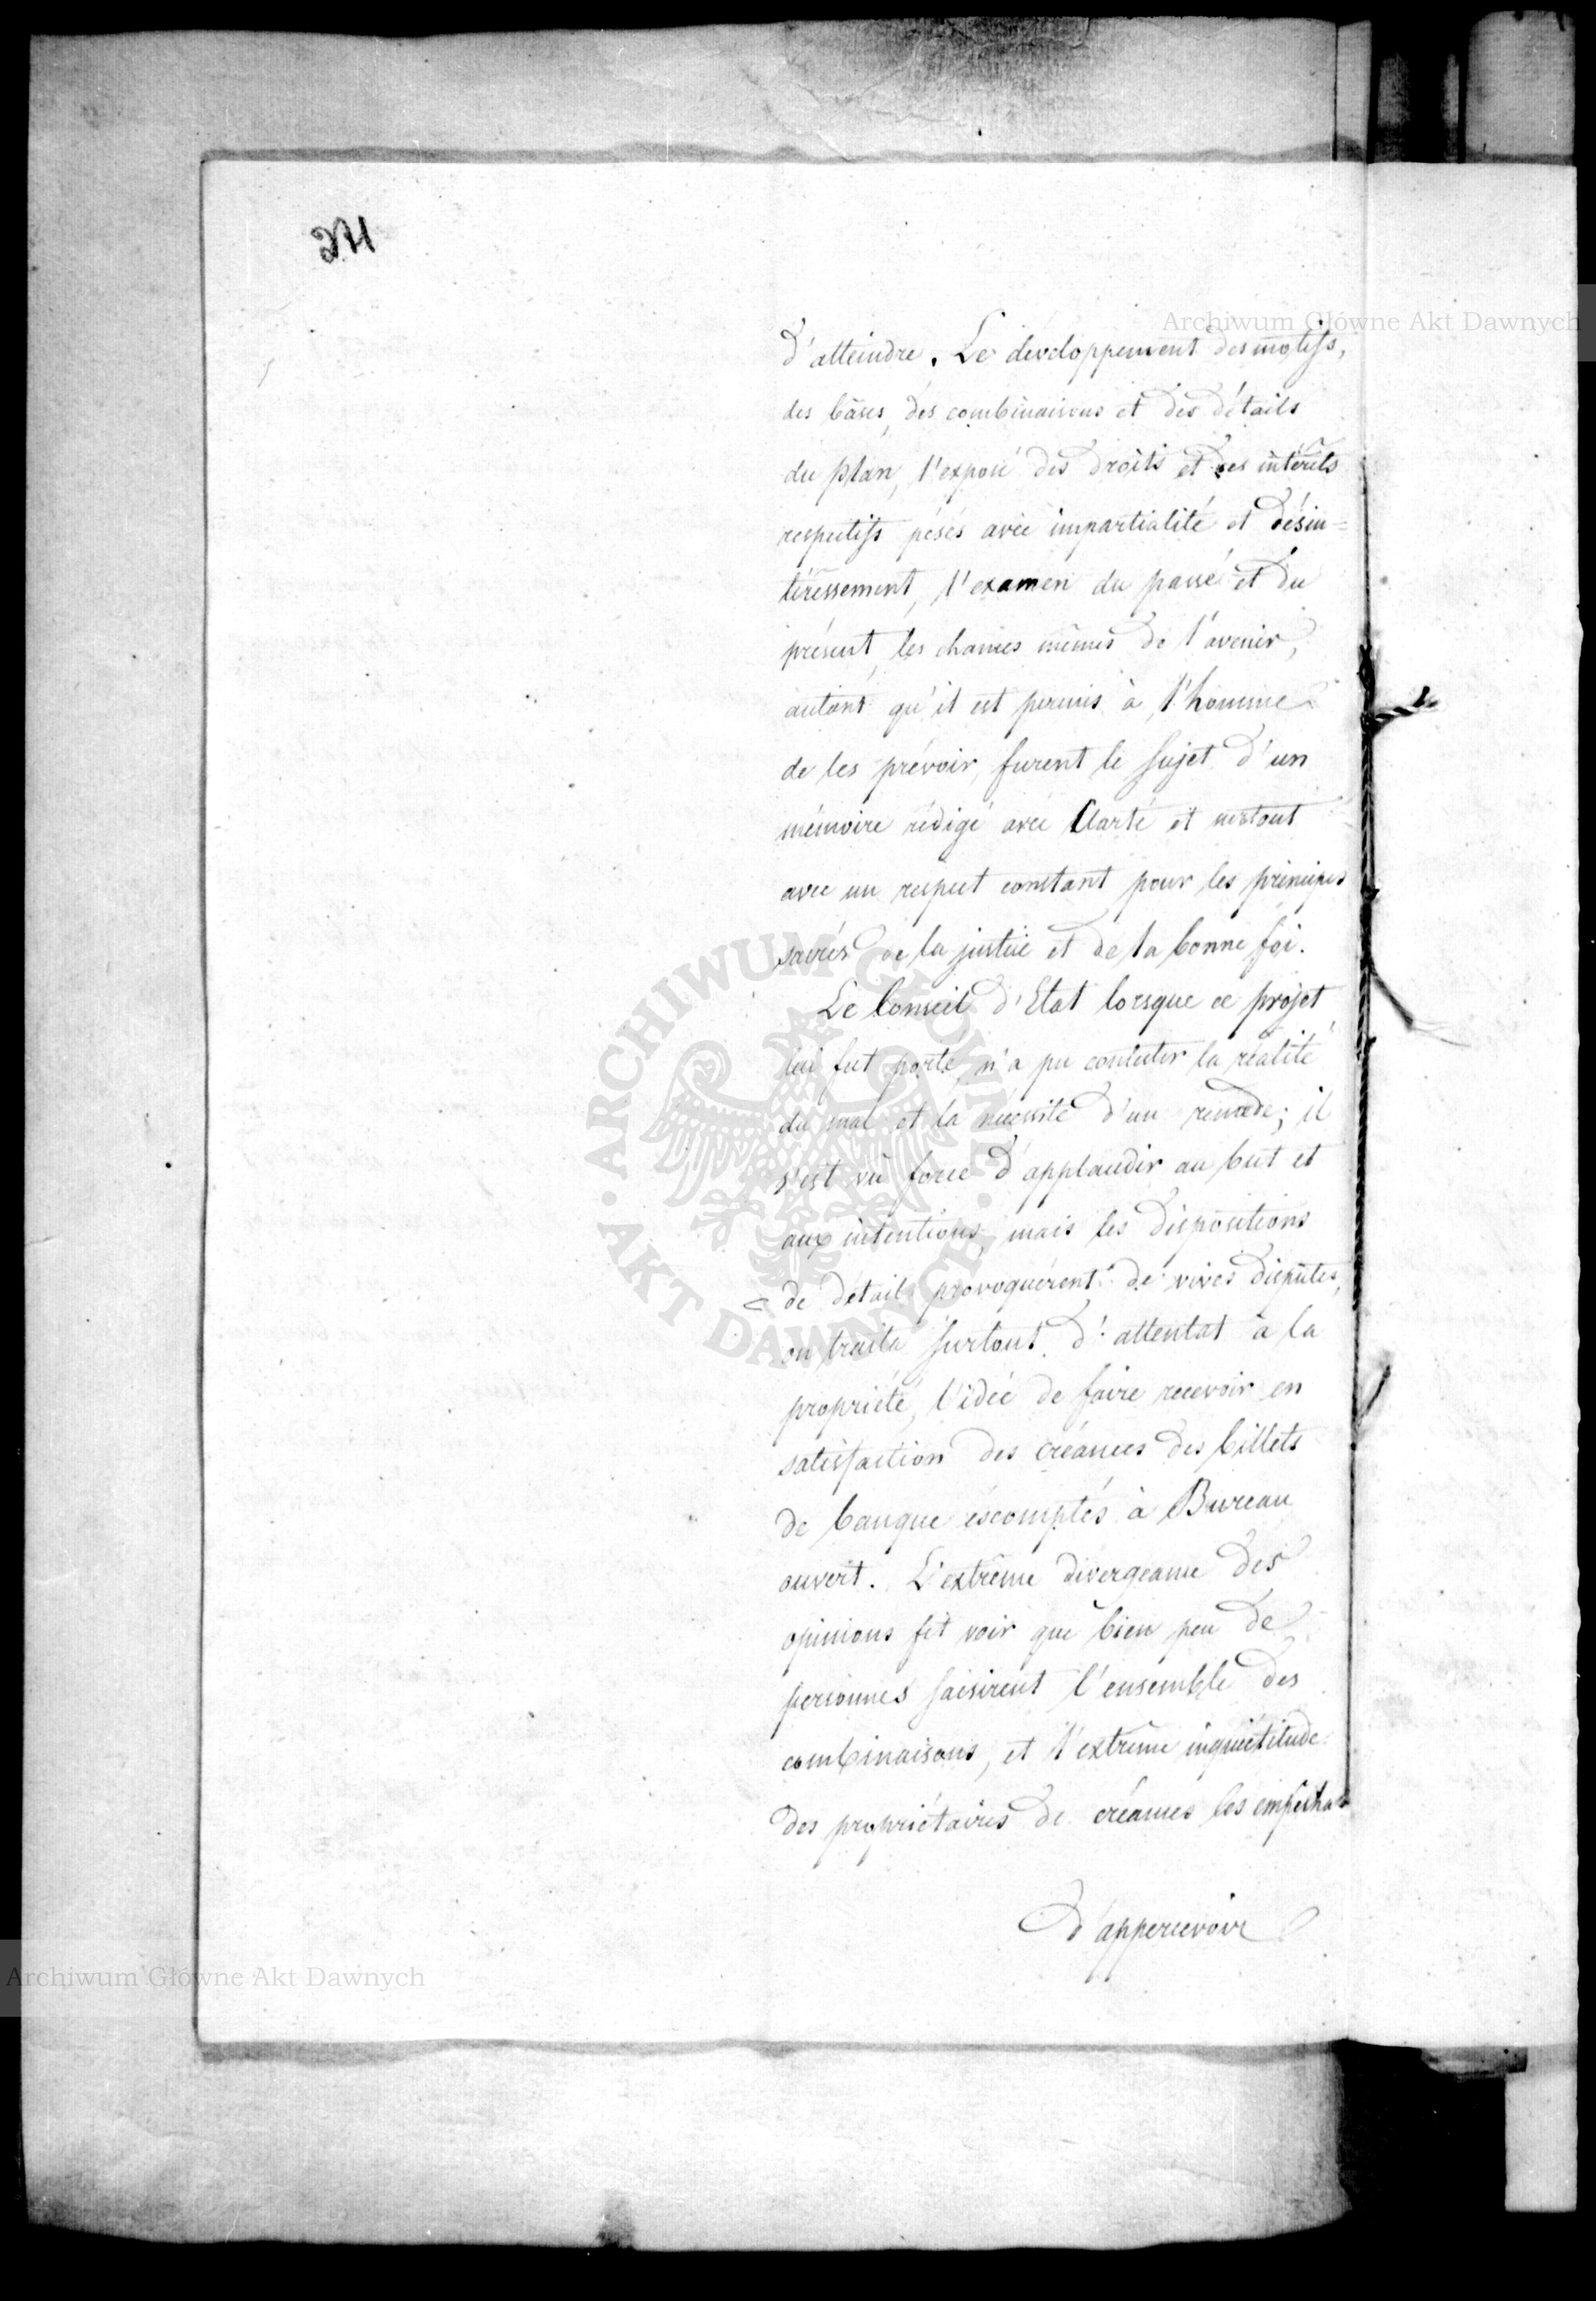 Archiwum Główne Akt Dawnych
d'atteindre. Le developpement des motifs,
des bâses, des combinaisons et des détails
du plan, l'exposé des droits et des intérêts
respectifs pésés avec impartialité et désin=
téressement, l'examen du passé et du
présent, les chances mêmes de l'avenir,
autant qu'il est permis à l'homme
de les prévoir, furent le sujet d'un
mémoire rédigé avec Clarté et surtout
avec un respect constant pour les principes
sacrés de la justice et de la bonne foi.
Le Conseil d'Etat lorsque ce projet
lui fut porté, n'a pu contester la réalité
du mal et la nécessité d'un remède; il
s'est vu forcé d'applaudir au but et
aux intentions, mais les dispositions
de détail provoquérent de vives disputes,
on traita surtout d'attentat à la
propriété, l'idée de faire recevoir en
satisfaction des créances des billets
de banque escomptés à Bureau
ouvert. L'extrême divergeance des
opinions fit voir que bien peu de
personnes saisirent l'ensemble des
combinaisons, et l'extrême inquiétitude
des propriétaires de créances les empêcha
d'appercevoir
ARCHIWUM GŁÓWNE
AKT DAWNYCH
Archiwum Główne Akt Dawnych